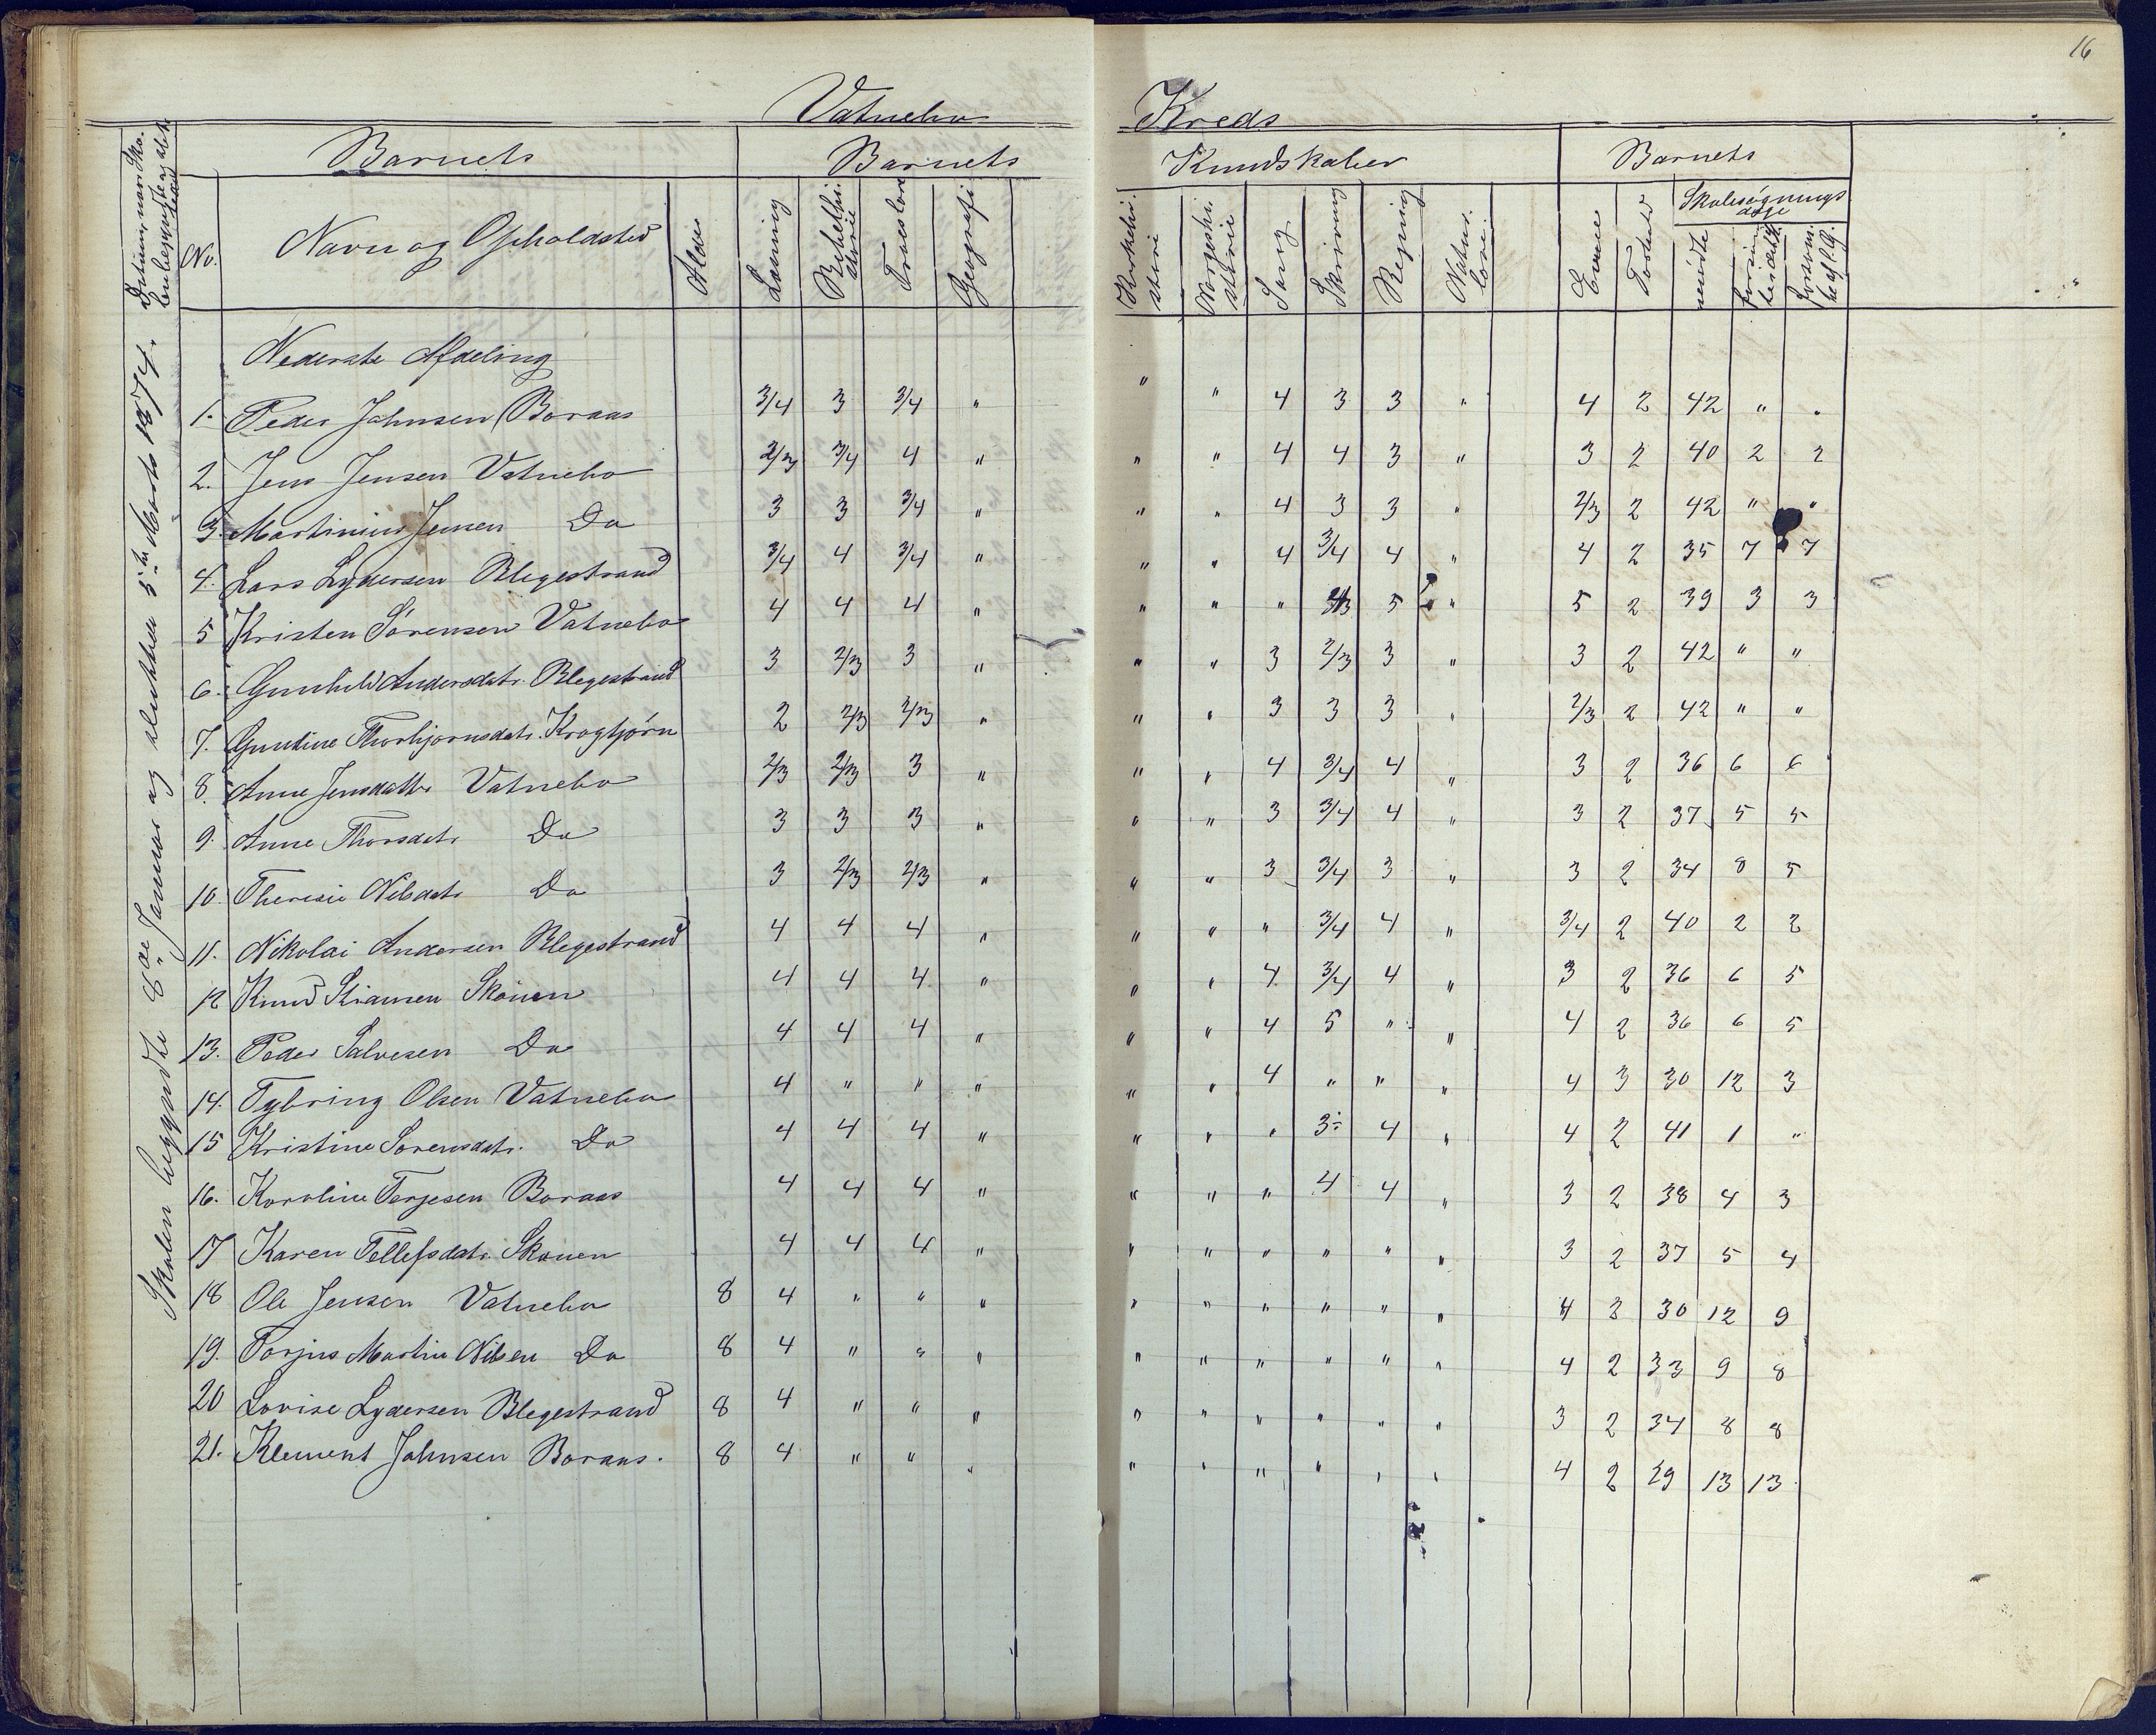 16
Vatnebo Kreds
Datum, naar Skolen begyndte og sluttede
Barnets Barnets Kundskaber Barnets
No. Navn og Opholdsted Alder Læsning Bibelhistorie Troeslære Geografi Kirkehistorie Norgeshistorie Sang Skrivning Regning Naturlære Evne Forhold Skolesøgningsdage
mødte forsømte i det hele forsømt af l. G.
Skolen begyndte 8de Januar og sluttede 5te Marts 1874.
Nederste Afdeling
1. Peder Johnsen Boraas 3/4 3 3/4 " " " 4 3 3 " 4 2 42 " "
2. Jens Jensen Vatnebo 2/3 3/4 4 " " " 4 4 3 " 3 2 40 2 2
3. Martinius Jensen Do 3 3 3/4 " " " 4 3 3 " 2/3 2 42 " "
4. Lars Lydersen Blegestrand 3/4 4 3/4 " " " 4 3/4 4 " 4 2 35 7 7
5 Kristen Sørensen Vatnebo 4 4 4 " " " " 5 " 5 2 39 3 3
6. Gunhild Andersdatr. Blegestrand 3 2/3 3 " " " 3 2/3 3 " 3 2 42 " "
7. Gundine Thorbjørnsdatr. Krogtjørn 2 2/3 2/3 " " " 3 3 3 " 2/3 2 42 " "
8. Anne Jensdattr Vatnebo 2/3 2/3 3 " " " 4 3/4 4 " 3 2 36 6 6
9. Anne Thorsdatr Do 3 3 3 " " " 3 3/4 4 " 3 2 37 5 5
10. Theresie Nilsdatr Do 3 2/3 2/3 " " " 3 3/4 3 " 3 2 34 8 5
11. Nikolai Andersen Blegestrand 4 4 4 " " " " 3/4 4 " 3/4 2 40 2 2
12 Knud Stiansen Skouen 4 4 4 " " " 4 3/4 4 " 3 2 36 6 5
13. Peder Salvesen Do 4 4 4 " " " 4 5 " " 4 2 36 6 5
14. Tybring Olsen Vatnebo 4 " " " " " 4 " " " 4 3 30 12 3
15 Kristine Sørensdatr. Do 4 4 4 " " " " 3÷ 4 " 4 2 41 1 "
16. Karoline Terjesen Boraas 4 4 4 " " " " 4 4 " 3 2 38 4 3
17 Karen Tellefsdatr. Skouen 4 4 4 " " " " " " " 3 2 37 5 4
18 Ole Jensen Vatnebo 8 4 " " " " " " " " " 4 2 30 12 9
19. Torjus Martin Nilsen Do 8 4 " " " " " " " " " 4 2 33 9 8
20 Lovise Lydersen Blegestrand 8 4 " " " " " " " " " 3 2 34 8 8
21. Klement Johnsen Boraas. 8 4 " " " " " " " " " 4 2 29 13 13